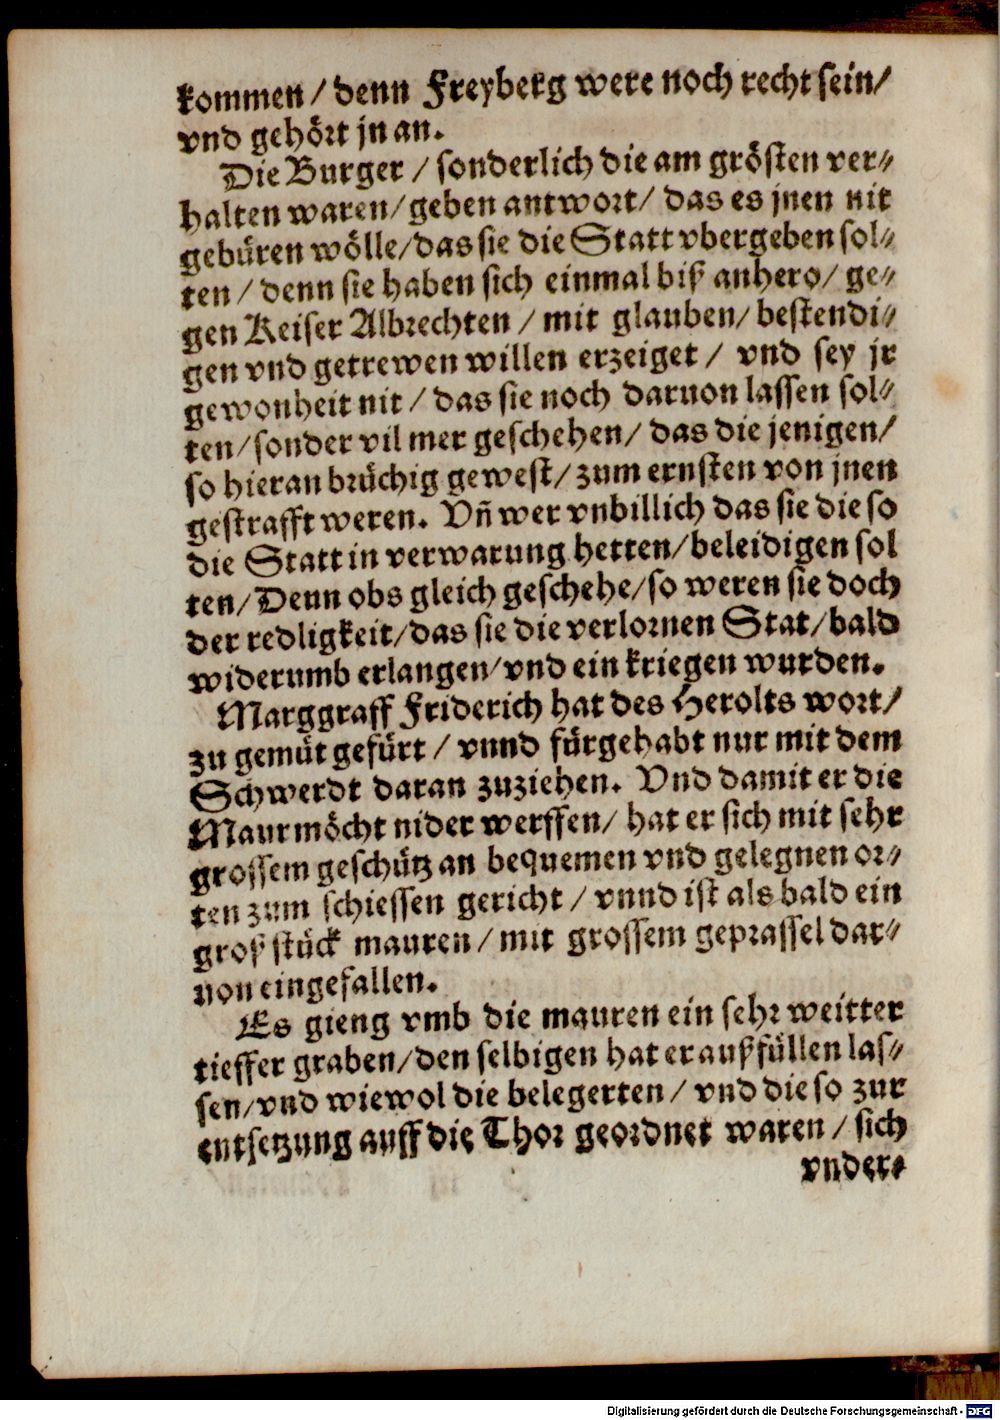 kommen / denn Freyberg were noch recht sein /
vnd gehört jn an.
Die Burger / sonderlich die am grösten ver⸗
halten waren / geben antwort / das es jnen nit
gebüren wölle / das sie die Statt vbergeben sol⸗
ten / denn sie haben sich einmal biß anhero / ge⸗
gen Keiser Albrechten / mit glauben / bestendi⸗
gen vnd getrewen willen erzeiget / vnd sey jr
gewonheit nit / das sie noch daruon lassen sol⸗
ten / sonder vil mer geschehen / das die jenigen /
so hieran brüchig gewest / zum ernsten von jnen
gestrafft weren. Vñ wer vnbillich das sie die so
die Statt in verwarung hetten / beleidigen sol
ten / Denn obs gleich geschehe / so weren sie doch
der redligkeit / das sie die verlornen Stat / bald
widerumb erlangen / vnd ein kriegen wurden.
Marggraff Friderich hat des Herolts wort /
zu gemüt gefürt / vnnd fürgehabt nur mit dem
Schwerdt daran zuziehen. Vnd damit er die
Maur möcht nider werffen / hat er sich mit sehr
grossem geschütz an bequemen vnd gelegnen or⸗
ten zum schiessen gericht / vnnd ist als bald ein
groß stück mauren / mit grossem geprassel dar⸗
von eingefallen.
Es gieng vmb die mauren ein sehr weitter
tieffer graben / den selbigen hat er außfüllen las⸗
sen / vnd wiewol die belegerten / vnd die so zur
entsetzung auff die Thor geordnet waren / sich
vnder⸗
Digitalisierung gefördert durch die Deutsche Forschungsgemeinschaft - DFG